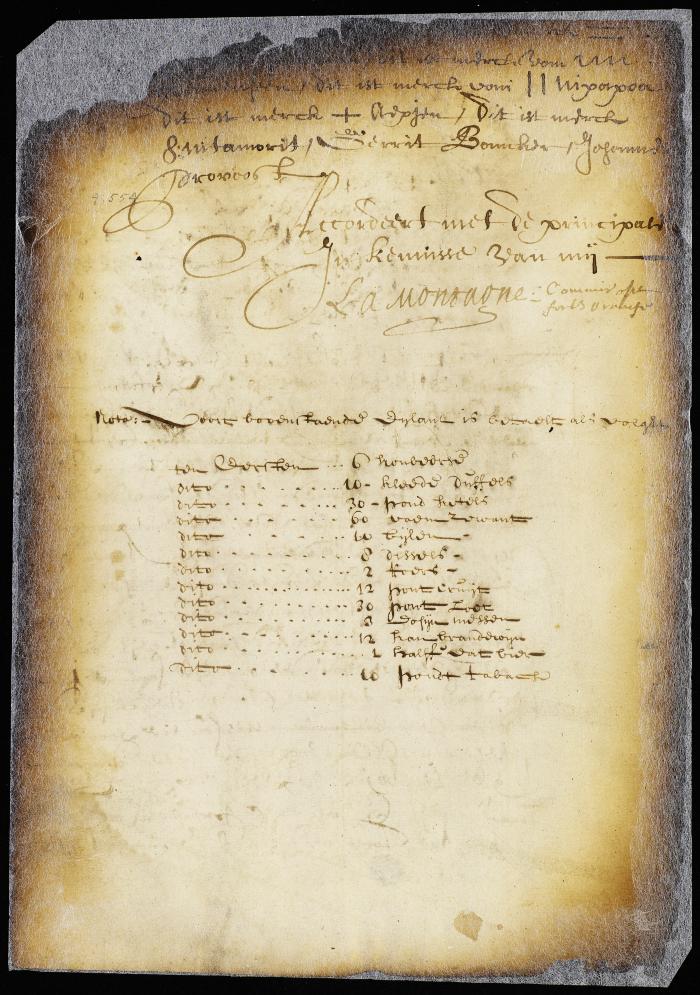 dit ist mercke van
dit ist mercke van
dit ist merck + Aepjen / Dit ist merck
/ Gerrit Bancker / Johannes
Provoost
9:554
Accordeert met de principale
In kennisse van mij
La Montagne : Commis opt
fort Orangie
Nota: Voort bovenstaende Eylant is betaelt als volght
ten Eersten ... 6 hondert
dito ... 10 - kleede Duffels
dito ... 30 - pond ketels
dito ... 60 vaem zewant
dito ... 10 bylen -
dito ... 8 dissels -
dito ... 2 Roers -
dito ... 12 pont Cruijt
dito ... 30 pont Loot
dito ... 8 Dosijn messen
dito ... 12 kan brandewijn
dito ... 1 halff vat bier
dito ... 10 pondt taback